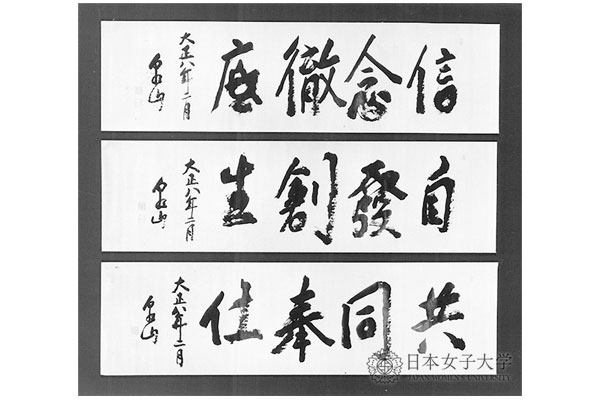 信念徹底
大正八年二月
泉山
自發創生
大正八年二月
泉山
共同奉仕
大正八年二月
泉山
日本女子大学
JAPAN WOMEN'S UNIVERSITY